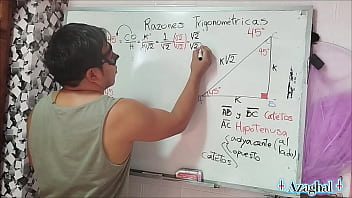 Razones Trigonométricas
45° = CO/H = K/K√2 = 1/√2 (√2)/(√2) √2/√2
45°
45°
K√2
K
K
B
AB y BC Catetos
AC Hipotenusa
Catetos { adyacente (al lado)
opuesto
Azaghal